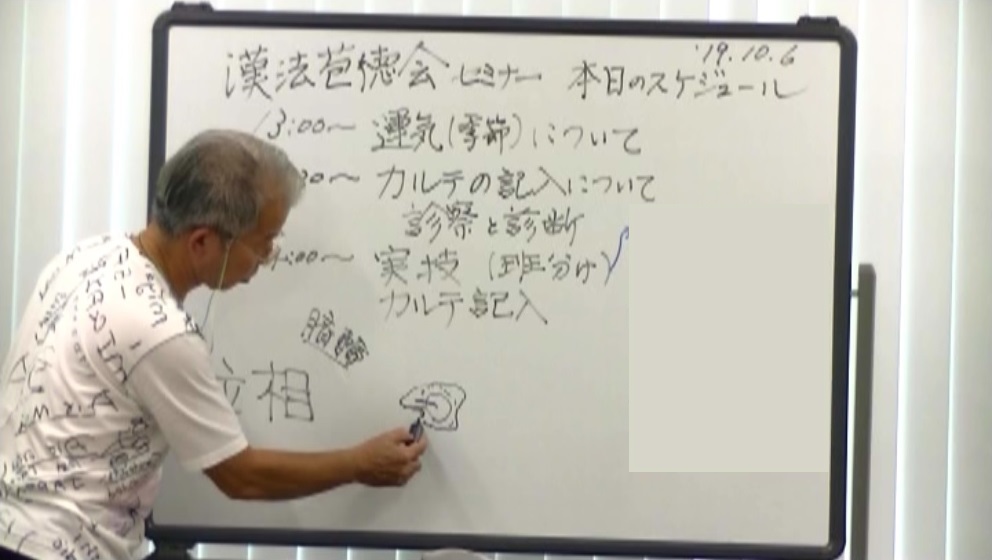 '19.10.6
漢法苞徳会セミナー 本日のスケジュール
13:00〜 運気(季節)について
00〜 カルテの記入について
診察と診断
:00〜 実技 (班分け)
カルテ記入
相